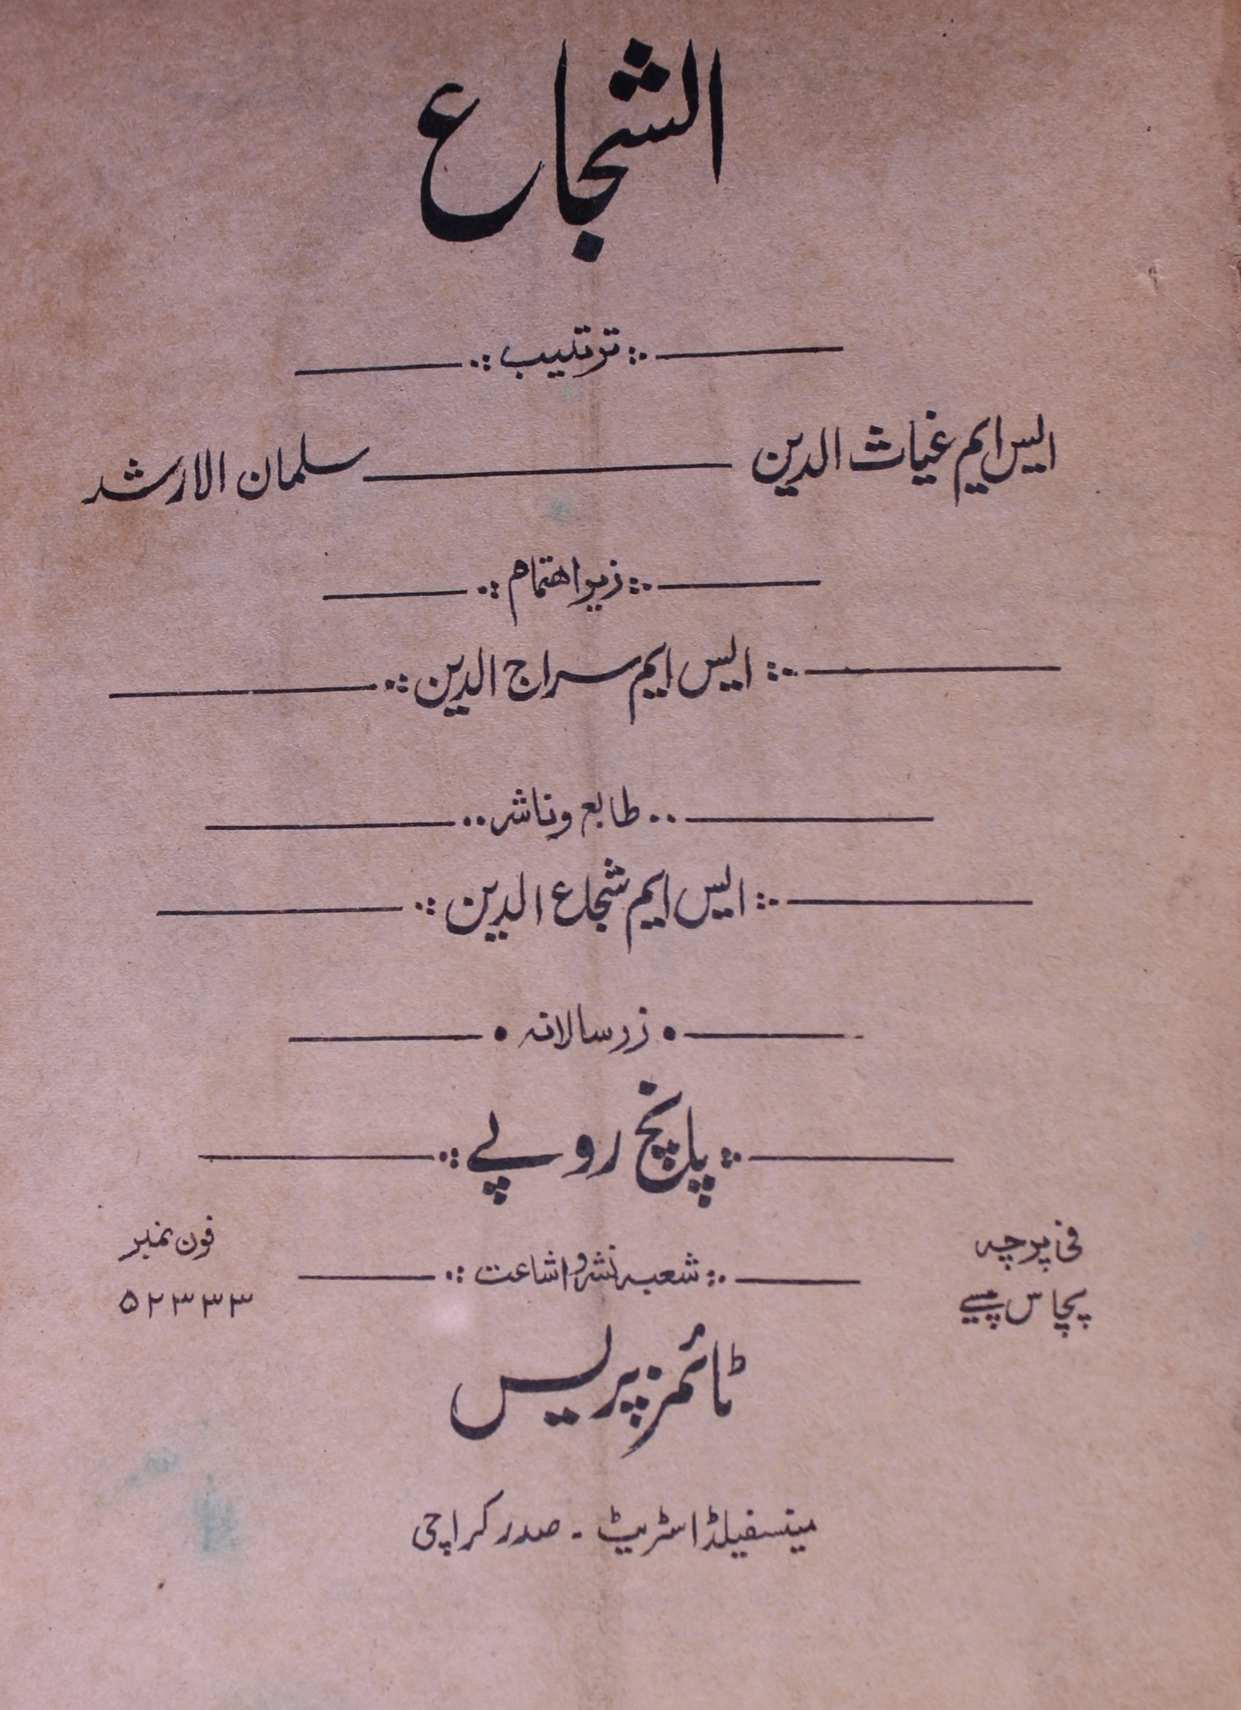 الشجاع
ترتیب
ایس ایم غیاث الدین سلمان الارشد
زیر اھتمام
ایس ایم سراج الدین
طابع و ناشر
ایس ایم شجاع الدین
زر سالانہ
پانچ روپے
فی پرچہ
پچاس پیسے
شعبہ نشر و اشاعت
فون نمبر
۵۲۳۳۳
ٹائمز پریس
مینسفیلڈ اسٹریٹ - صدر کراچی